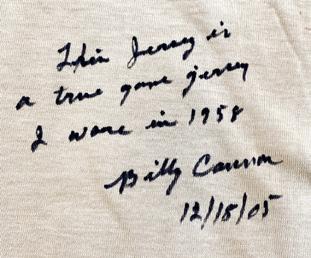 This Jersey is
a true game jersey
I wore in 1958
Billy Cannon
12/18/05